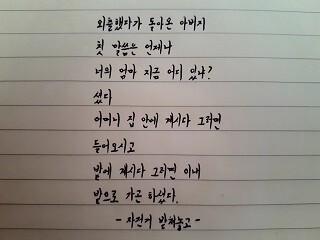 외출했다가 돌아온 아버지
첫 말씀은 언제나
너의 엄마 지금 어디 있냐?
셨다
어머니 집 안에 계시다 그러면
들어오시고
밭에 계시다 그러면 이내
밭으로 가곤 하셨다.
- 자전거 받쳐놓고 -